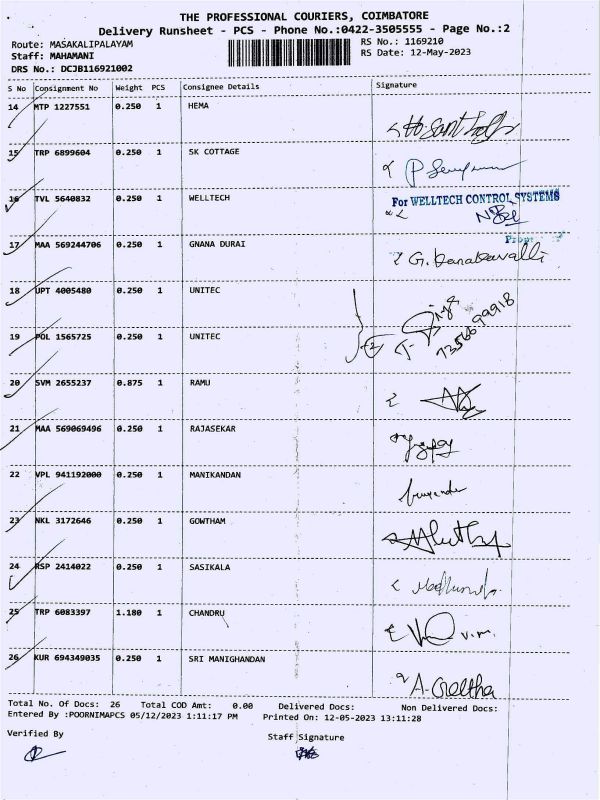 THE PROFESSIONAL COURIERS, COIMBATORE
Delivery Runsheet - PCS - Phone No.:0422-3505555 - Page No.:2
Route: MASAKALIPALAYAM RS No.: 1169210
Staff: MAHAMANI RS Date: 12-May-2023
DRS No.: DCJB116921002
S No Consignment No Weight PCS Consignee Details Signature
14 MTP 1227551 0.250 1 HEMA
15 TRP 6899604 0.250 1 SK COTTAGE
16 TVL 5640832 0.250 1 WELLTECH
For WELLTECH CONTROL SYSTEMS
17 MAA 569244706 0.250 1 GNANA DURAI
18 UPT 4005480 0.250 1 UNITEC
7356699918
19 POL 1565725 0.250 1 UNITEC
20 SVM 2655237 0.875 1 RAMU
21 MAA 569069496 0.250 1 RAJASEKAR
22 VPL 941192000 0.250 1 MANIKANDAN
23 NKL 3172646 0.250 1 GOWTHAM
24 RSP 2414022 0.250 1 SASIKALA
25 TRP 6083397 1.180 1 CHANDRU
V.M.
26 KUR 694349035 0.250 1 SRI MANIGHANDAN
A. Geetha
Total No. Of Docs: 26 Total COD Amt: 0.00 Delivered Docs: Non Delivered Docs:
Entered By :POORNIMAPCS 05/12/2023 1:11:17 PM Printed On: 12-05-2023 13:11:28
Verified By Staff Signature